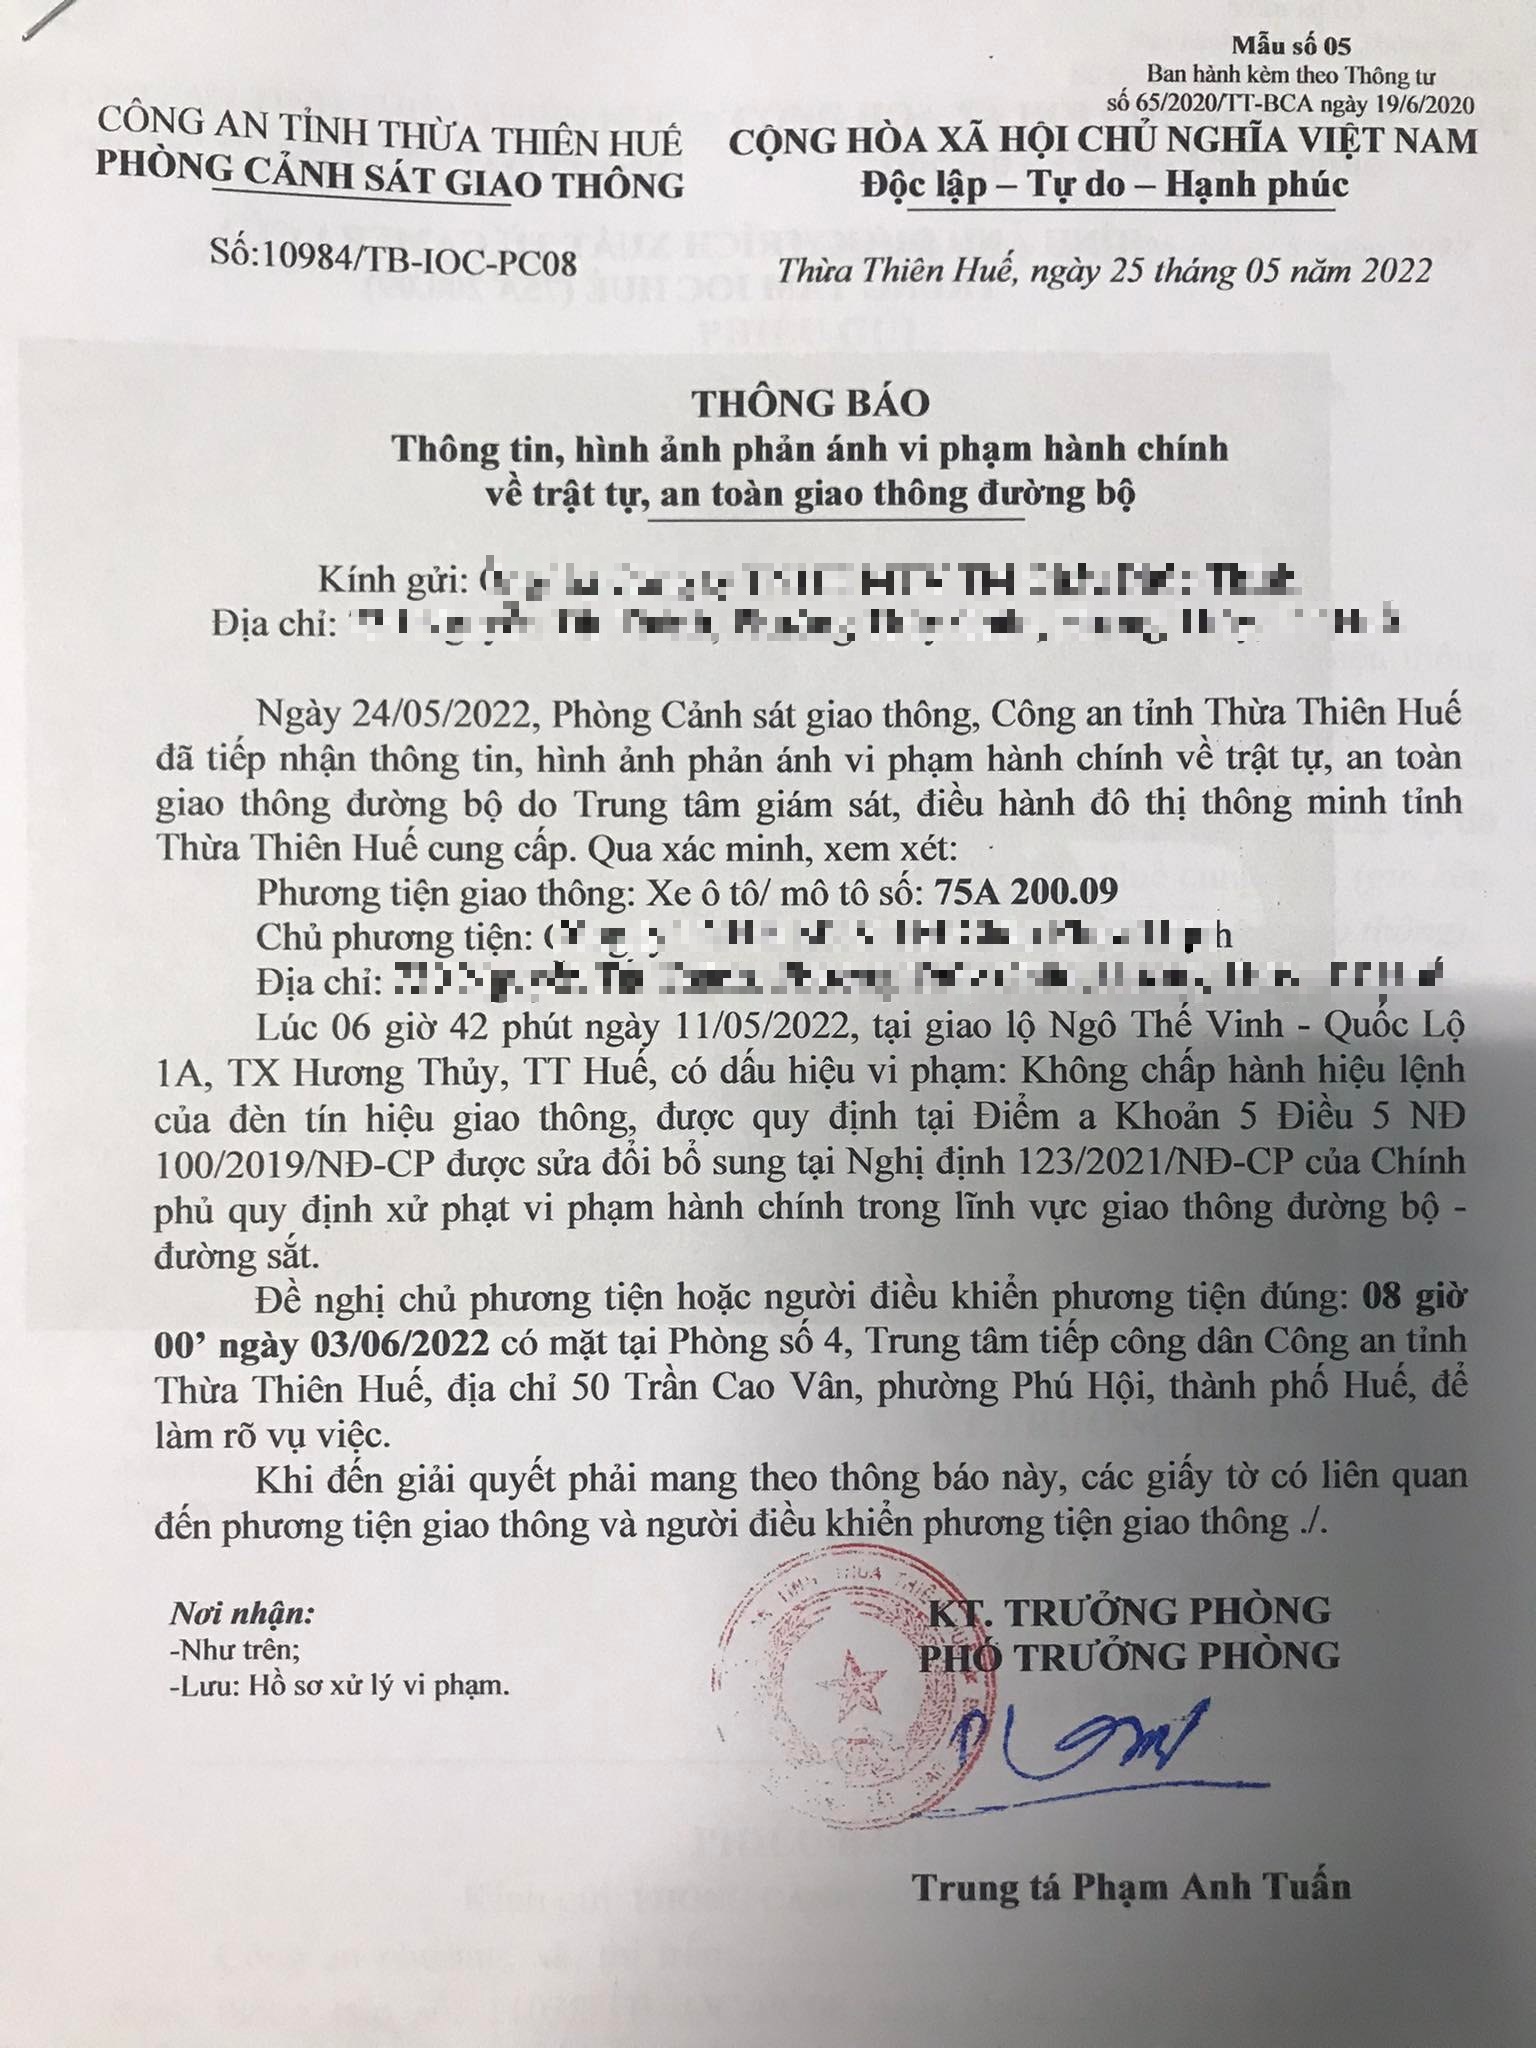 Mẫu số 05
Ban hành kèm theo Thông tư
số 65/2020/TT-BCA ngày 19/6/2020
CÔNG AN TỈNH THỪA THIÊN HUẾ
PHÒNG CẢNH SÁT GIAO THÔNG
CỘNG HÒA XÃ HỘI CHỦ NGHĨA VIỆT NAM
Độc lập – Tự do – Hạnh phúc
Số:10984/TB-IOC-PC08
Thừa Thiên Huế, ngày 25 tháng 05 năm 2022
THÔNG BÁO
Thông tin, hình ảnh phản ánh vi phạm hành chính
về trật tự, an toàn giao thông đường bộ
Kính gửi:
Địa chỉ:
Ngày 24/05/2022, Phòng Cảnh sát giao thông, Công an tỉnh Thừa Thiên Huế
đã tiếp nhận thông tin, hình ảnh phản ánh vi phạm hành chính về trật tự, an toàn
giao thông đường bộ do Trung tâm giám sát, điều hành đô thị thông minh tỉnh
Thừa Thiên Huế cung cấp. Qua xác minh, xem xét:
Phương tiện giao thông: Xe ô tô/ mô tô số: 75A 200.09
Chủ phương tiện:
Địa chỉ:
Lúc 06 giờ 42 phút ngày 11/05/2022, tại giao lộ Ngô Thế Vinh - Quốc Lộ
1A, TX Hương Thủy, TT Huế, có dấu hiệu vi phạm: Không chấp hành hiệu lệnh
của đèn tín hiệu giao thông, được quy định tại Điểm a Khoản 5 Điều 5 NĐ
100/2019/NĐ-CP được sửa đổi bổ sung tại Nghị định 123/2021/NĐ-CP của Chính
phủ quy định xử phạt vi phạm hành chính trong lĩnh vực giao thông đường bộ -
đường sắt.
Đề nghị chủ phương tiện hoặc người điều khiển phương tiện đúng: 08 giờ
00’ ngày 03/06/2022 có mặt tại Phòng số 4, Trung tâm tiếp công dân Công an tỉnh
Thừa Thiên Huế, địa chỉ 50 Trần Cao Vân, phường Phú Hội, thành phố Huế, để
làm rõ vụ việc.
Khi đến giải quyết phải mang theo thông báo này, các giấy tờ có liên quan
đến phương tiện giao thông và người điều khiển phương tiện giao thông ./.
Nơi nhận:
-Như trên;
-Lưu: Hồ sơ xử lý vi phạm.
KT. TRƯỞNG PHÒNG
PHÓ TRƯỞNG PHÒNG
Trung tá Phạm Anh Tuấn